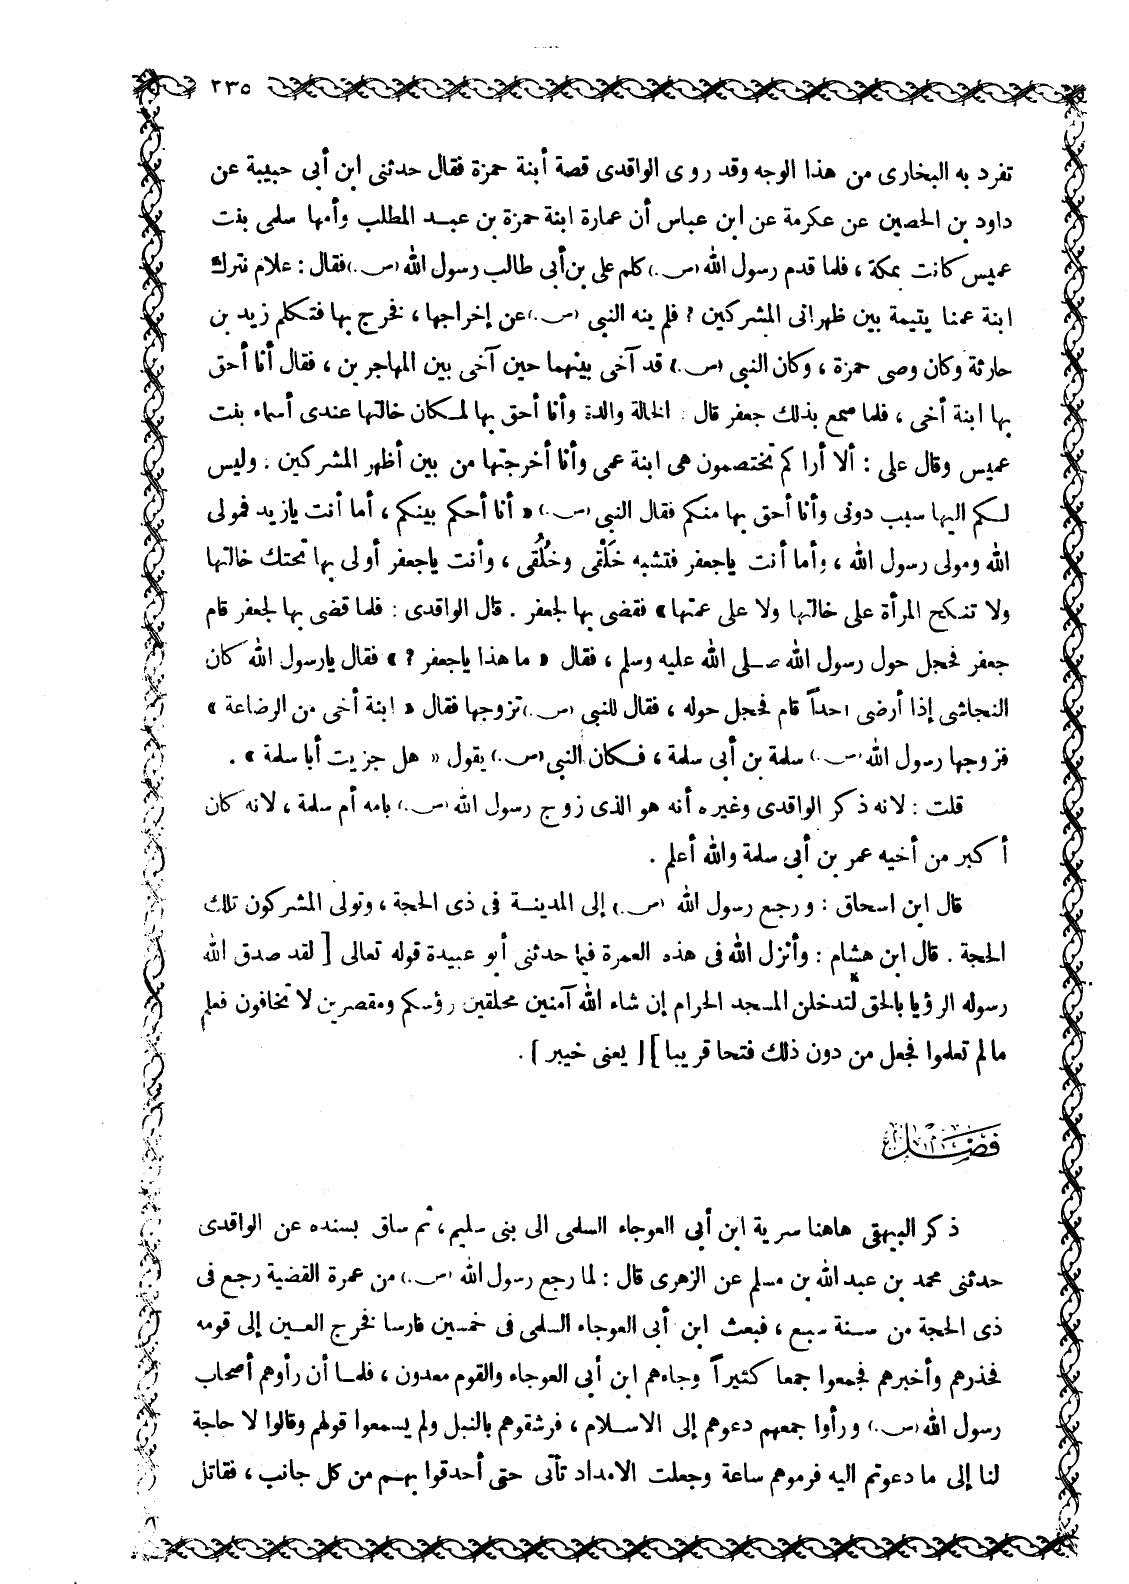 ٢٣٥
تفرد به البخارى من هذا الوجه وقد روى الواقدى قصة أبنة حمزة فقال حدثنى ابن أبى حبيبة عن
داود بن الحصين عن عكرمة عن ابن عباس أن عمارة ابنة حمزة بن عبد المطلب وأمها سلمى بنت
عميس كانت بمكة ، فلما قدم رسول الله (ص.) كلم على بن أبى طالب رسول الله (ص.) فقال : علام نترك
ابنة عمنا يتيمة بين ظهرانى المشركين ? فلم ينه النبى (ص.) عن إخراجها ، فخرج بها فتكلم زيد بن
حارثة وكان وصى حمزة ، وكان النبى (ص.) قد آخى بينهما حين آخى بين المهاجرين ، فقال أنا أحق
بها ابنة أخى ، فلما سمع بذلك جعفر قال . الخالة والدة وأنا أحق بها لمكان خالتها عندى أسماء بنت
عميس وقال على : ألا أراكم تختصمون هى ابنة عمى وأنا أخرجتها من بين أظهر المشركين . وليس
لكم اليها سبب دونى وأنا أحق بها منكم فقال النبى (ص.) « أنا أحكم بينكم ، أما أنت يازيد فمولى
الله ومولى رسول الله ، وأما أنت ياجعفر فتشبه خَلْقى وخُلُقى ، وأنت ياجعفر أولى بها تحتك خالتها
ولا تنكح المرأة على خالتها ولا على عمتها » فقضى بها لجعفر . قال الواقدى : فلما قضى بها لجعفر قام
جعفر فحجل حول رسول الله صلى الله عليه وسلم ، فقال « ما هذا ياجعفر ? » فقال يارسول الله كان
النجاشى إذا أرضى احداً قام فحجل حوله ، فقال للنبى (ص.) تزوجها فقال « ابنة أخى من الرضاعة »
فزوجها رسول الله (ص.) سلمة بن أبى سلمة ، فكان النبى (ص.) يقول « هل جزيت أبا سلمة » .
قلت : لانه ذكر الواقدى وغيره أنه هو الذى زوج رسول الله (ص.) بامه أم سلمة ، لانه كان
أكبر من أخيه عمر بن أبى سلمة والله أعلم .
قال ابن اسحاق : ورجع رسول الله (ص.) إلى المدينة فى ذى الحجة ، وتولى المشركون تلك
الحجة . قال ابن هشام : وأنزل الله فى هذه العمرة فيما حدثنى أبو عبيدة قوله تعالى [ لقد صدق الله
رسوله الرؤيا بالحق لتدخلن المسجد الحرام إن شاء الله آمنين محلقين رؤسكم ومقصرين لا تخافون فعلم
مالم تعلموا فجعل من دون ذلك فتحا قريبا ] [ يعنى خيبر ] .
فصل
ذكر البيهقى هاهنا سرية ابن أبى العوجاء السلمى الى بنى سليم ، ثم ساق بسنده عن الواقدى
حدثنى محمد بن عبد الله بن مسلم عن الزهرى قال : لما رجع رسول الله (ص.) من عمرة القضية رجع فى
ذى الحجة من سنة سبع ، فبعث ابن أبى العوجاء السلمى فى خمسين فارسا فخرج العين إلى قومه
فحذرهم وأخبرهم فجمعوا جمعا كثيراً وجاءهم ابن أبى العوجاء والقوم معدون ، فلما أن رأوهم أصحاب
رسول الله (ص.) ورأوا جمعهم دعوهم إلى الاسلام ، فرشقوهم بالنبل ولم يسمعوا قولهم وقالوا لا حاجة
لنا إلى ما دعوتم اليه فرموهم ساعة وجعلت الامداد تأتى حتى أحدقوا بهم من كل جانب ، فقاتل